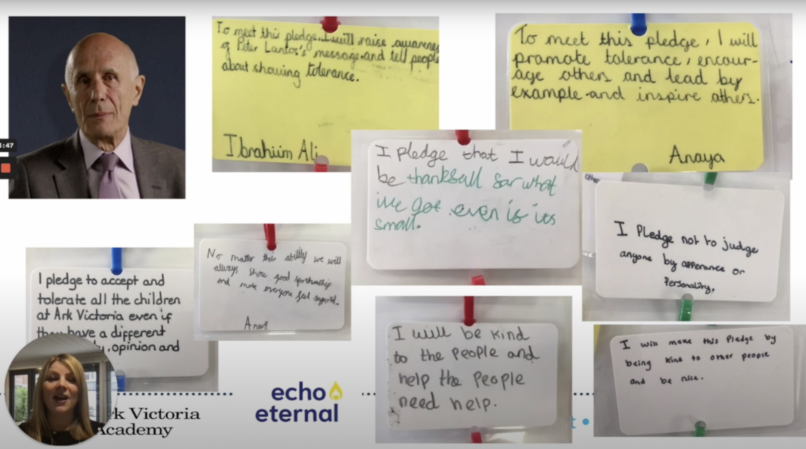 :47
To meet this pledge I will raise awareness
of Peter Lantos's message and tell people
about showing tolerance.
Ibrahiim Ali
To meet this pledge, I will
promote tolerance, encour-
age others and lead by
example and inspire others.
Anaya
I pledge that I would
be thankfull for what
we got even if its
small.
I Pledge not to judge
anyone by
Personality.
I pledge to accept and
tolerate all the children
at Ark Victoria even if
they have a different
, opinion and
No matter the ability we will
always show good sportsmanship
and make everyone feel
I will be kind
to the People and
help the People
need help.
I will make this Pledge by
being kind to other people
and be nice.
rk Victoria
Academy
echo
eternal
t